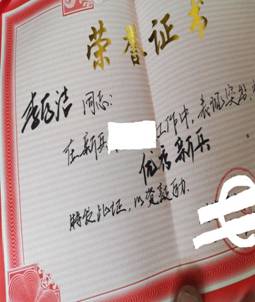 荣誉证书
同志:
在新兵 工作中,表现突出,
优秀新兵
特发此证,以资鼓励.